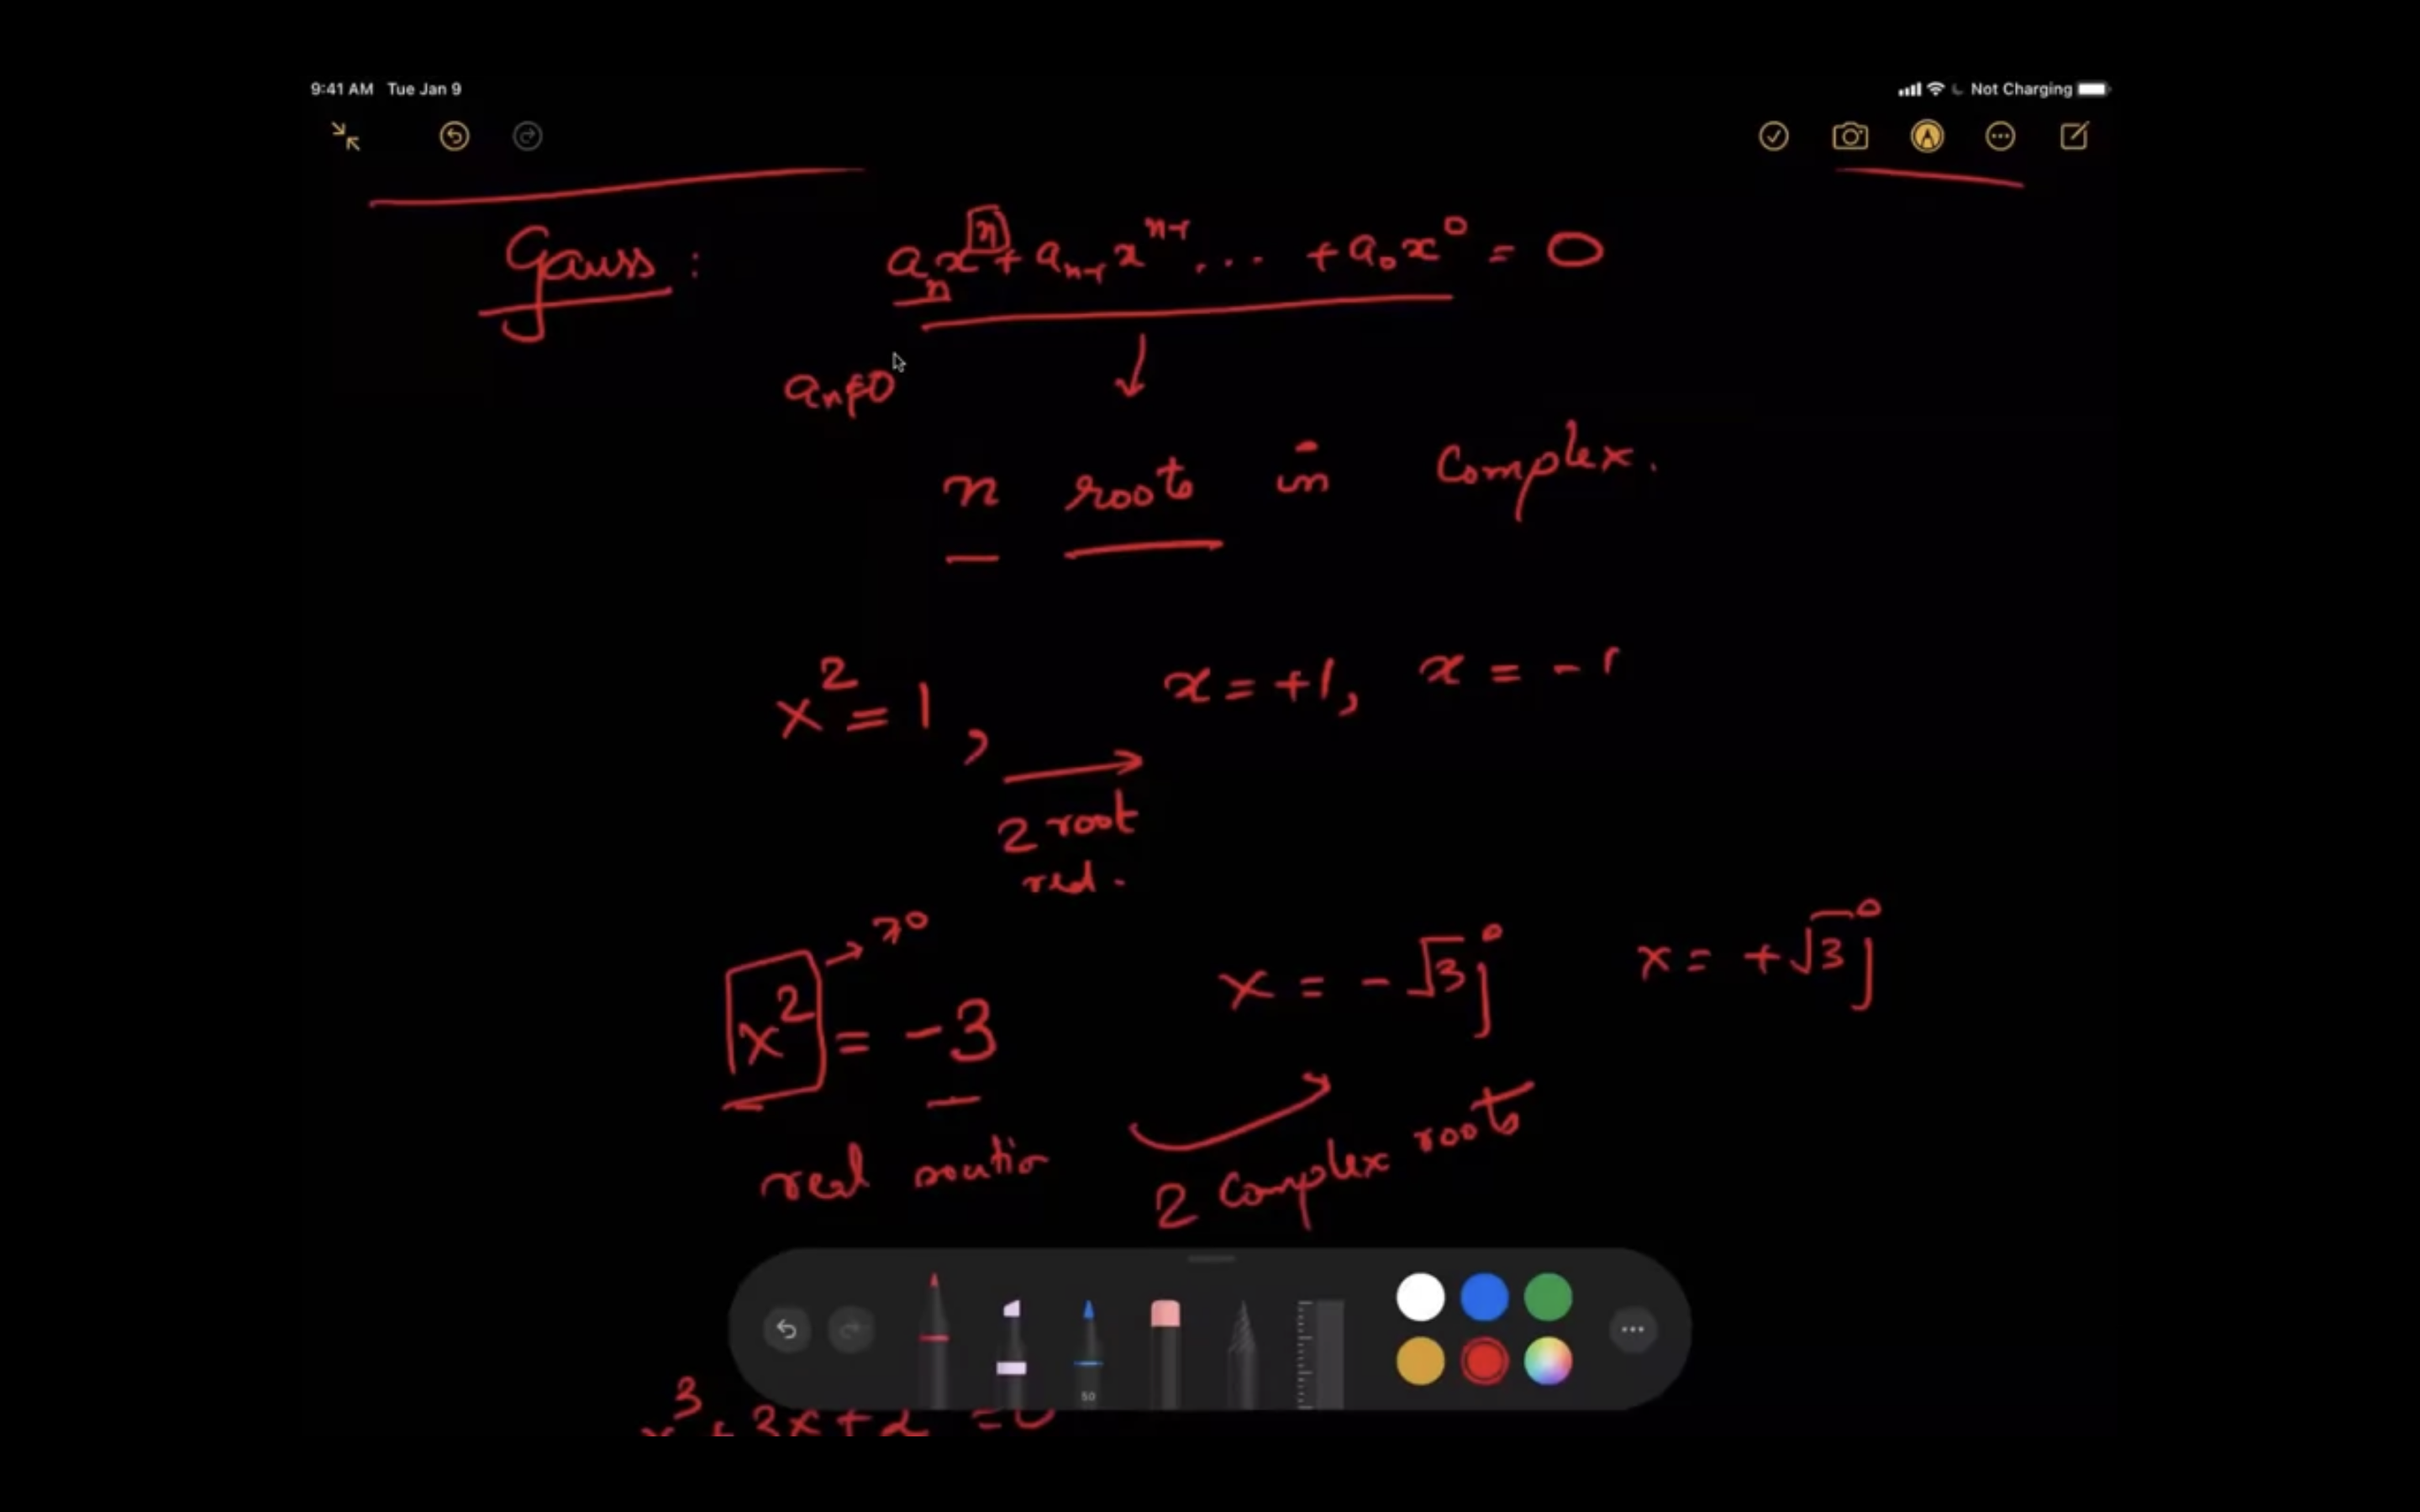 9:41 AM Tue Jan 9 Not Charging
Gauss : aₙxⁿ + aₙ₋₁ xⁿ⁻¹ . . . + a₀x⁰ = 0
aₙ≠0
n roots in Complex.
x² = 1 , x = +1, x = -1
2 root
real.
x² = -3
x = -√3 j x = +√3 j
real
2 Complex roots
50
x³ + 3x + 2 = 0